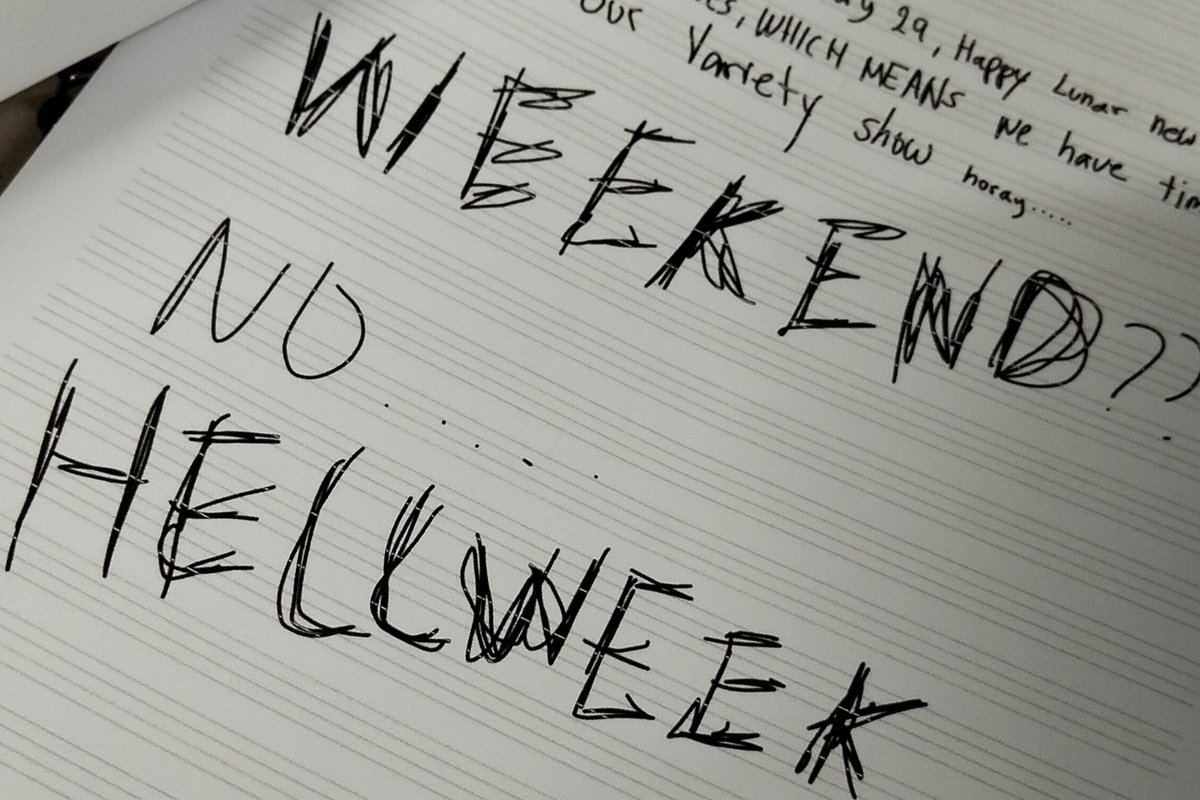 29, Happy Lunar new
, WHICH MEANS we have
our Variety show horay.....
WEEKEND??
NO.....
HELLWEEK